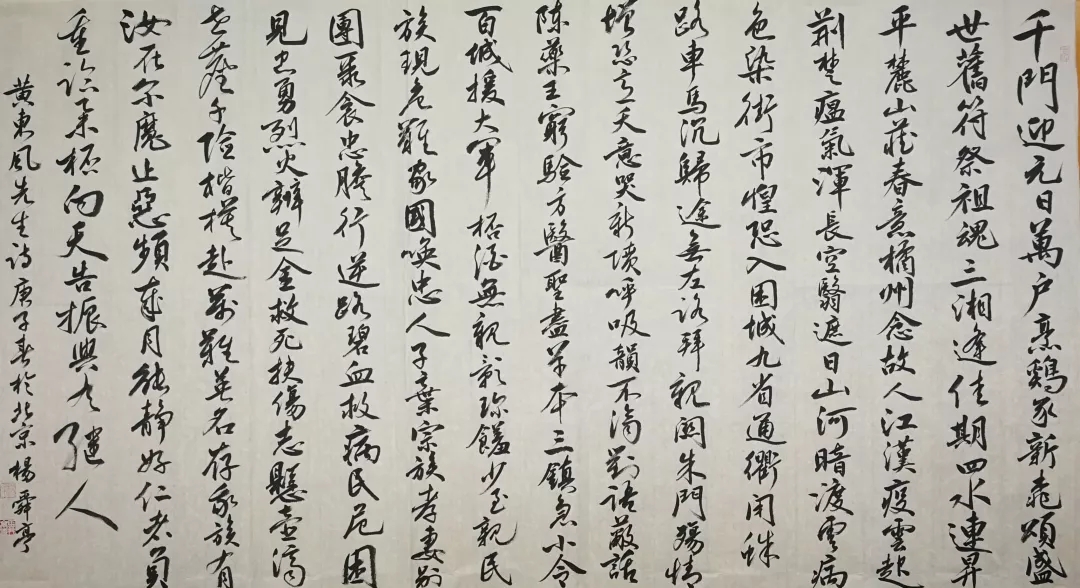 千門迎元日萬户烹鷄豕新桃頌盛
世舊符祭祖魂三湘逢佳期四水連昇
平麓山蕴春意橘州念故人江漢疫雲起
荆楚瘟氣渾長空翳遮日山河暗渡雲病
色染街市惶恐入困城九省通衢閉蛛
路車馬沉歸途無左詻拜親闕朱門殤情
增恐言天意哭新墳呼吸韻不滴對語蔽話
陈藥王窮驗方醫聖盡草本三鎮急小令
百城援大軍柸酒無親影珍饈少至親民
族現危難家國唤忠人子棄宗族孝妻别
團聚食忠膽行逆路碧血救病民危困
見忠勇烈火辨足金救死扶傷志懸壺濟
世蒼千險楷模赴萬難英名存家族有
汝在尔魔止惡頻歲月能静好仁者負
重詅柔柸向天告振興大继人
黄東風先生诗庚子春於北京楊舜亭